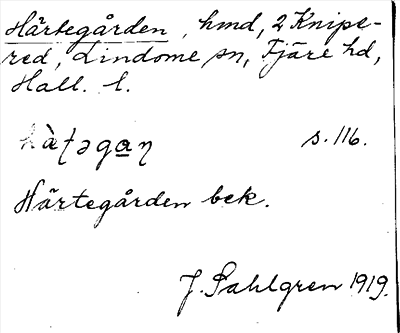 Härtegården, hmd, 2 Knipe-
red, Lindome sn, Fjäre hd,
Hall. l.
hàʈəga̲ɳ s. 116.
Härtegården bek.
J. Sahlgren 1919.